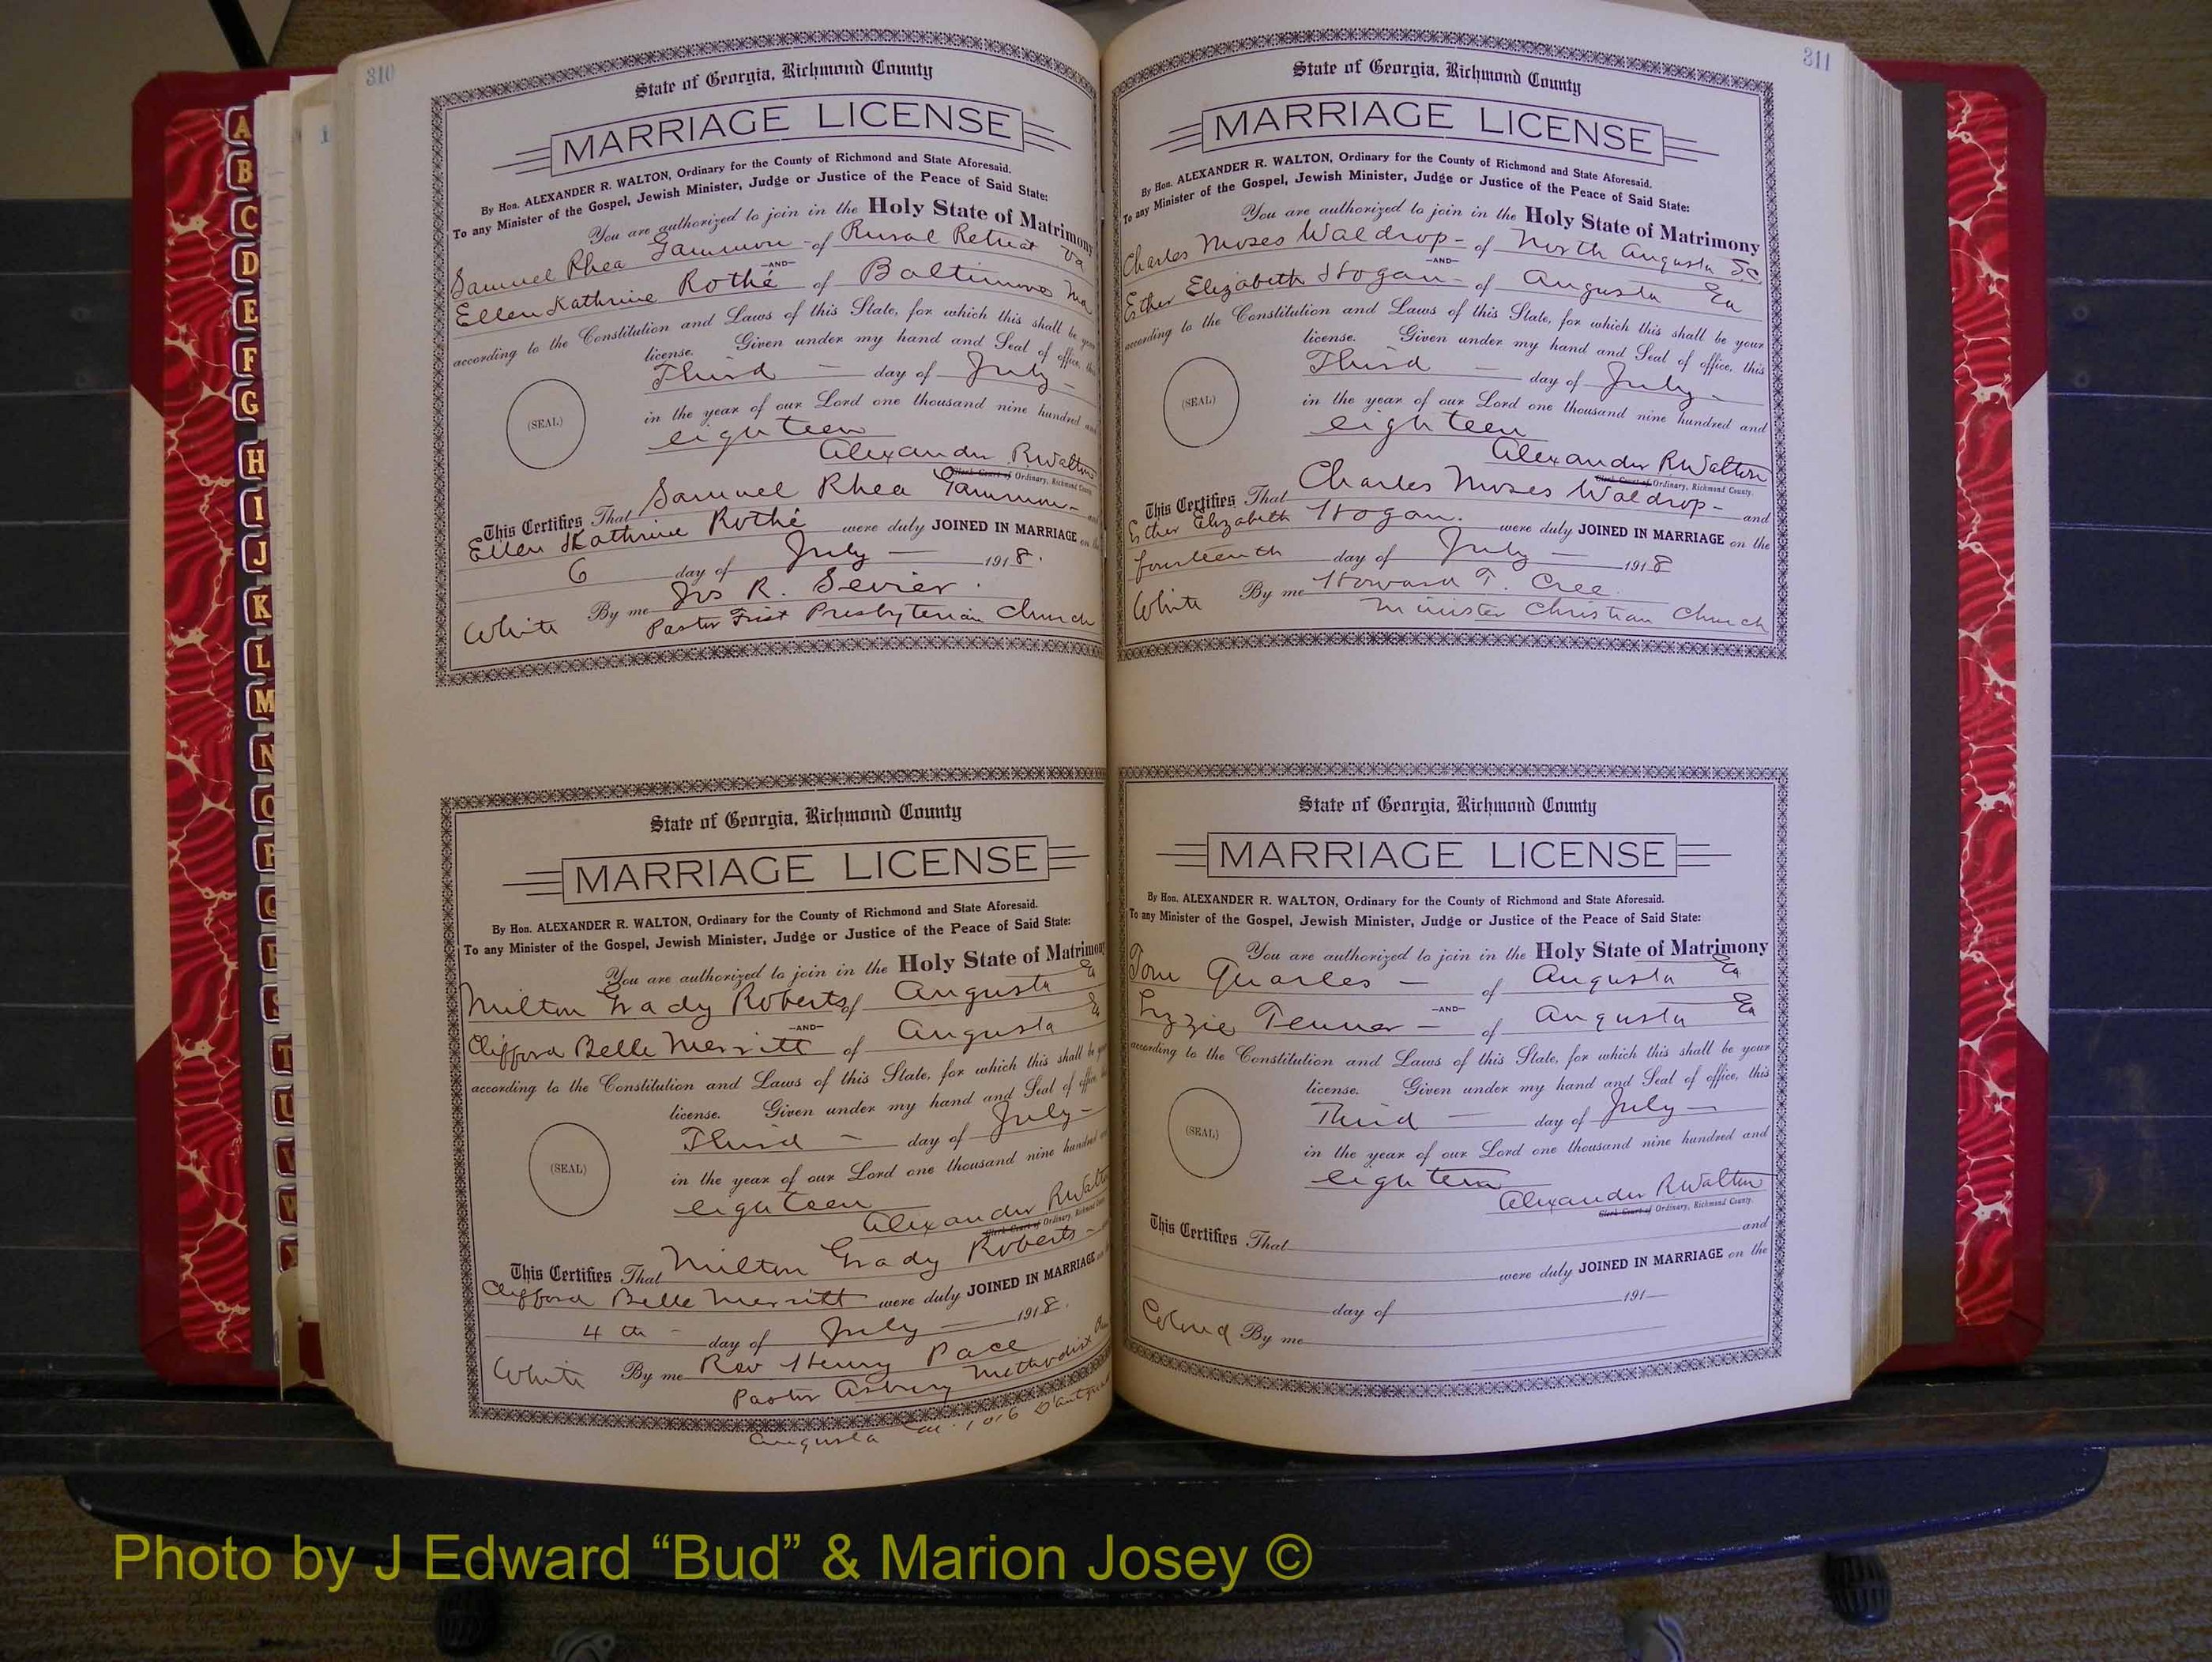 310
State of Georgia, Richmond County
MARRIAGE LICENSE
By Hon. ALEXANDER R. WALTON, Ordinary for the County of Richmond and State Aforesaid.
To any Minister of the Gospel, Jewish Minister, Judge or Justice of the Peace of Said State:
You are authorized to join in the Holy State of Matrimony
Samuel Rhea Gammon - of Rural Retreat Va
-AND-
Ellen Kathrine Rothé of Baltimore Md
according to the Constitution and Laws of this State, for which this shall be your
license. Given under my hand and Seal of office, this
Third - day of July -
(SEAL)
in the year of our Lord one thousand nine hundred and
eighteen
Alexander R Walton
Clerk Court of Ordinary, Richmond County
This Certifies That Samuel Rhea Gammon - and
Ellen Kathrine Rothé were duly JOINED IN MARRIAGE on the
6 day of July - 1918.
White By me Jos R. Sevier.
Pastor First Presbyterian Church
State of Georgia, Richmond County
MARRIAGE LICENSE
By Hon. ALEXANDER R. WALTON, Ordinary for the County of Richmond and State Aforesaid.
To any Minister of the Gospel, Jewish Minister, Judge or Justice of the Peace of Said State:
You are authorized to join in the Holy State of Matrimony
Milton Grady Roberts of Augusta Ga
-AND-
Clifford Belle Merritt of Augusta Ga
according to the Constitution and Laws of this State, for which this shall be your
license. Given under my hand and Seal of office, this
Third - day of July -
(SEAL)
in the year of our Lord one thousand nine hundred and
eighteen
Alexander R Walton
Clerk Court of Ordinary, Richmond County
This Certifies That Milton Grady Roberts -
Clifford Belle Merritt were duly JOINED IN MARRIAGE on
4 th - day of July - 1918.
White By me Rev Henry Pace
Pastor Asbury Methodist
Augusta 1016 D'antignac
311
State of Georgia, Richmond County
MARRIAGE LICENSE
By Hon. ALEXANDER R. WALTON, Ordinary for the County of Richmond and State Aforesaid.
To any Minister of the Gospel, Jewish Minister, Judge or Justice of the Peace of Said State:
You are authorized to join in the Holy State of Matrimony
Charles Moses Waldrop - of North Augusta S.C.
-AND-
Esther Elizabeth Hogan - of Augusta Ga
according to the Constitution and Laws of this State, for which this shall be your
license. Given under my hand and Seal of office, this
Third - day of July -
(SEAL)
in the year of our Lord one thousand nine hundred and
eighteen
Alexander R Walton
Clerk Court of Ordinary, Richmond County.
This Certifies That Charles Moses Waldrop - and
Esther Elizabeth Hogan. were duly JOINED IN MARRIAGE on the
fourteenth day of July - 1918
White By me Howard T. Cree.
Minister Christian Church
State of Georgia, Richmond County
MARRIAGE LICENSE
By Hon. ALEXANDER R. WALTON, Ordinary for the County of Richmond and State Aforesaid.
To any Minister of the Gospel, Jewish Minister, Judge or Justice of the Peace of Said State:
You are authorized to join in the Holy State of Matrimony
Tom Quarles - of Augusta Ga
-AND-
Lizzie Tenner - of Augusta Ga
according to the Constitution and Laws of this State, for which this shall be your
license. Given under my hand and Seal of office, this
Third - day of July -
(SEAL)
in the year of our Lord one thousand nine hundred and
eighteen
Alexander R Walton
Clerk Court of Ordinary, Richmond County.
This Certifies That and
were duly JOINED IN MARRIAGE on the
day of 191
Colored By me
A
B
C
D
E
F
G
H
I
J
K
L
M
N
O
P
Q
R
S
T
U
V
W
Photo by J Edward “Bud” & Marion Josey ©